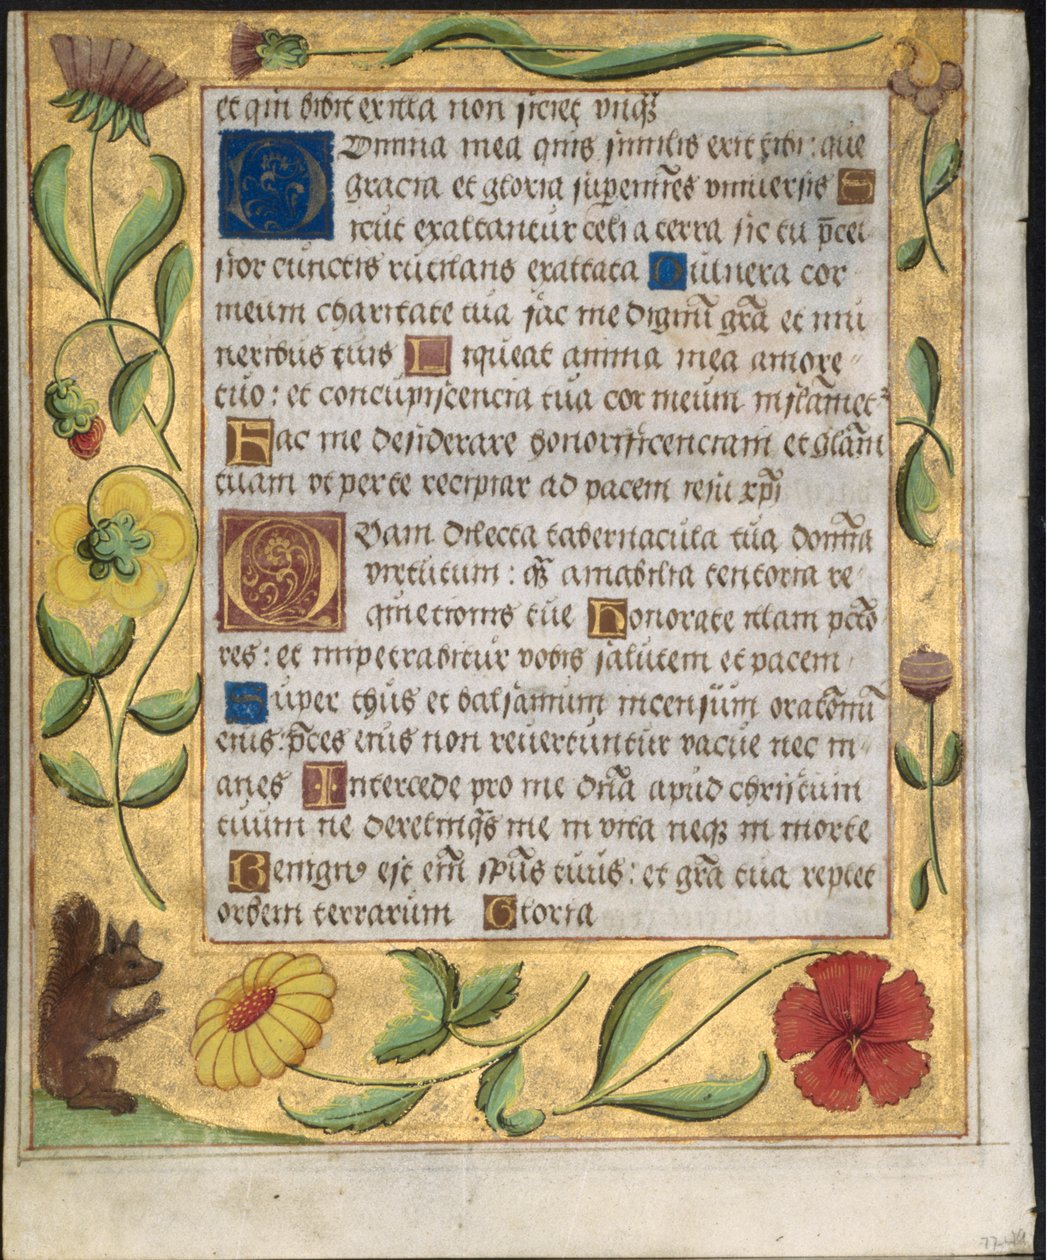 et qui bibit ex illa non siciet vnq̃ꝫ
Domina mea quis similis erit tibi: que
gracia et gloria sup̲emĩes vniuersis S
icut exaltantur celi a terra sic tu p̃cel
sior cunctis rutilans exaltata Uulnera cor
meum charitate tua fac me dignũ grã et mu
neribus tuis Liqueat anima mea amore
tuo: et concupiscencia tua cor meum inflamet
Fac me desiderare honorificenciam et glãm
tuam vt per te recipiar ad pacem iesu xp̃i
Quam dilecta tabernacula tua domĩa
virtutum: q̃ꝫ amabilia tentoria re
quietionis tue Honorate illam pctõ
res: et impetrabitur vobis salutem et pacem
Super thus et balsamum incensum oratõnũ
eius: p̃ces eius non reuertuntur vacue nec in
anes Intercede pro me dñã apud christum
tuum ne derelinq̃s me in vita neqꝫ in morte
Benignꝰ est em̃ sp̃us tuus: et grã tua replet
orbem terrarum Gloria